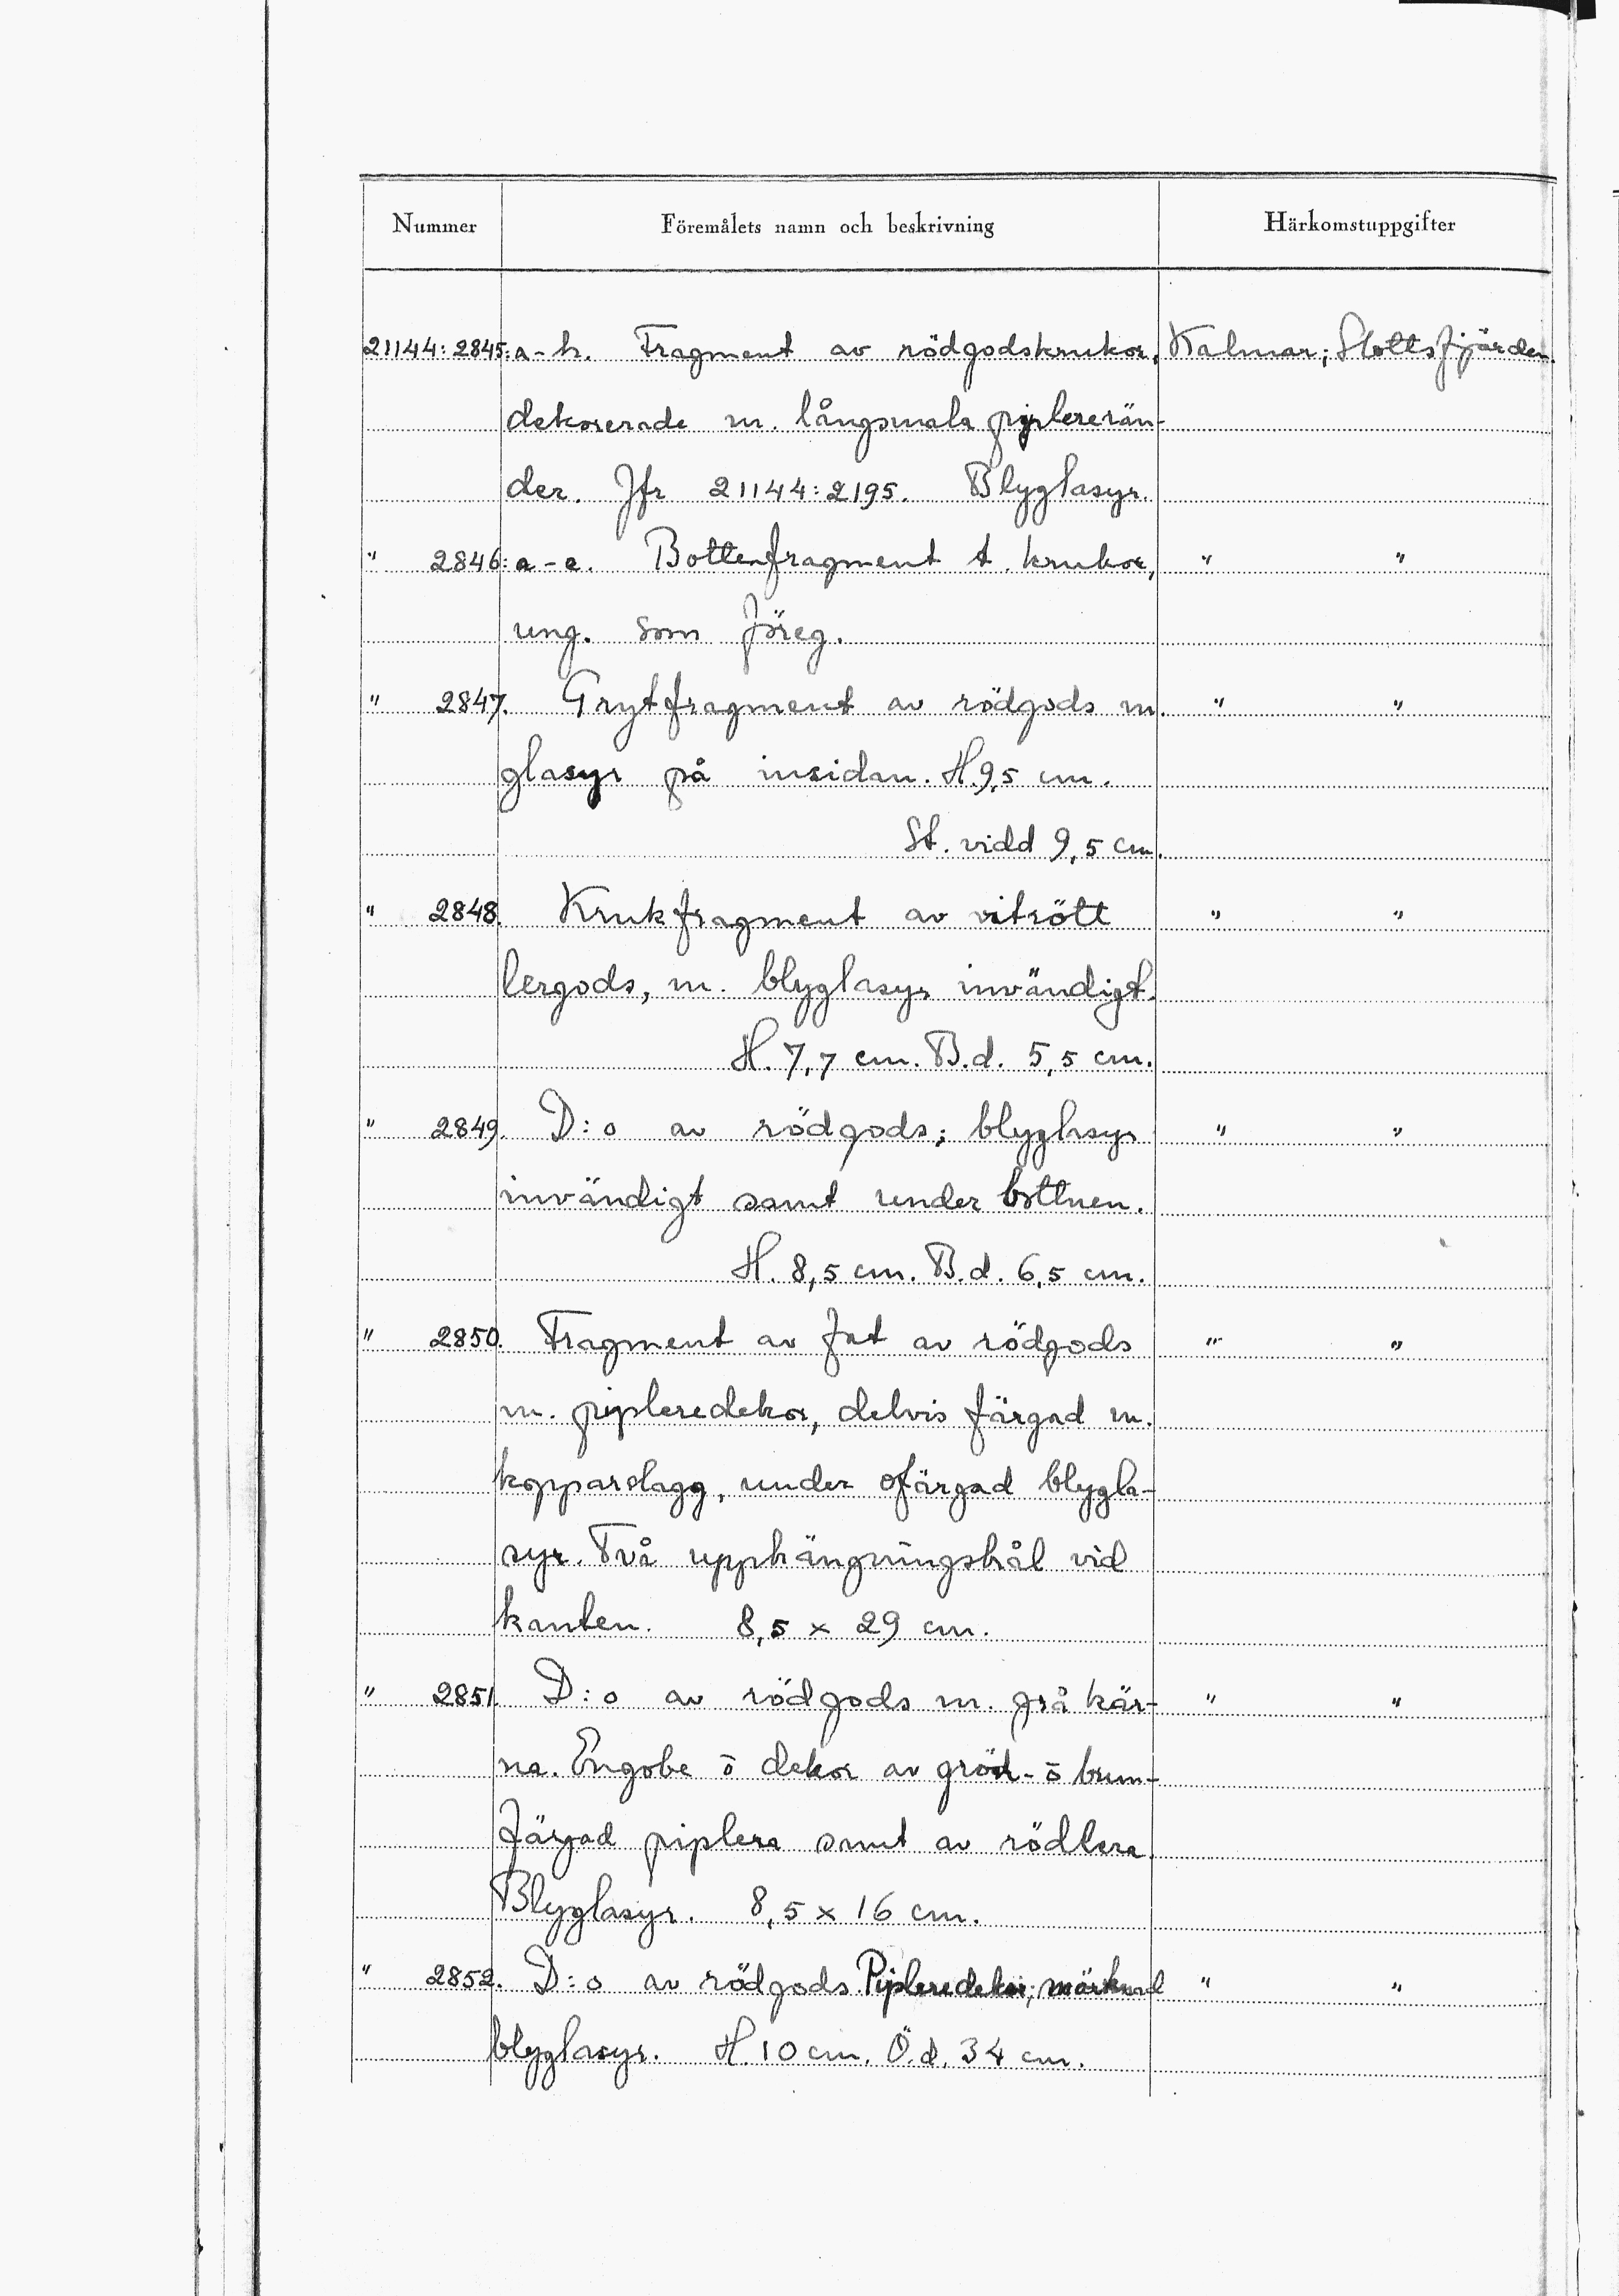 Nummer Föremålets namn och beskrivning Härkomstuppgifter
21144:2845:a-h. Fragment av rödgodskrukor, Kalmar; Slottsfjärden.
dekorerade m. långsmala piplererän-
der. Jfr 21144:2195. Blyglasyr.
" 2846:a-e. Bottenfragment t. krukor, " "
ung. som föreg.
" 2847. Grytfragment av rödgods m. " "
glasyr på insidan. H. 9,5 cm.
St. vidd 9,5 cm.
" 2848. Krukfragment av vitrött " "
lergods, m. blyglasyr invändigt.
H. 7,7 cm. B.d. 5,5 cm.
" 2849. D:o av rödgods; blyglasyr " "
invändigt samt under bottnen.
H. 8,5 cm. B.d. 6,5 cm.
" 2850. Fragment av fat av rödgods " "
m. pipleredekor, delvis färgad m.
kopparslagg, under ofärgad blygla-
syr. Två upphängningshål vid
kanten. 8,5 x 29 cm.
" 2851. D:o av rödgods m. grå kär- " "
na. Engobe ō dekor av grön- ō brun-
färgad piplera samt av rödlera.
Blyglasyr. 8,5 x 16 cm.
" 2852. D:o av rödgods. Pipleredekor; mörknad " "
blyglasyr. H. 10 cm. Ö.d. 34 cm.